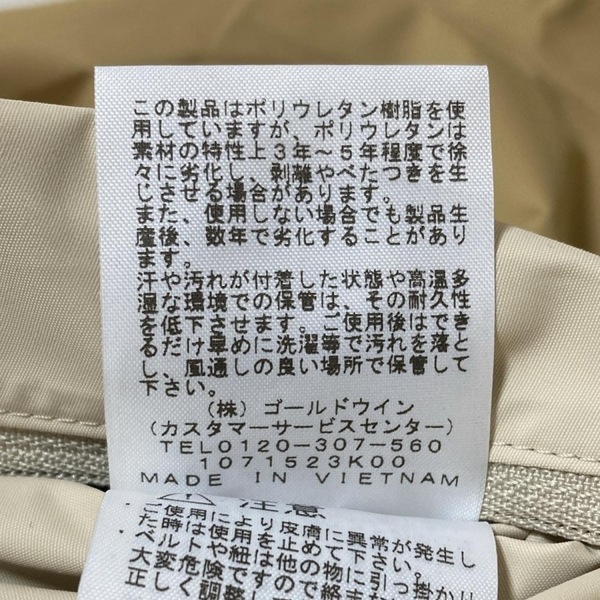 この製品はポリウレタン樹脂を使
用していますが、ポリウレタンは
素材の特性上3年～5年程度で徐
々に劣化し、剥離やべたつきを生
じさせる場合があります。
また、使用しない場合でも製品生
産後、数年で劣化することがあり
ます。
汗や汚れが付着した状態や高温多
湿な環境での保管は、その耐久性
を低下させます。ご使用後はでき
るだけ早めに洗濯等で汚れを落と
し、風通しの良い場所で保管して
下さい。
(株)ゴールドウイン
(カスタマーサービスセンター)
TEL0120-307-560
1071523K00
MADE IN VIETNAM
注意
ご使用により皮膚に異常が発生し
た時は使用を止めて下さい。
ベルトや紐は他の物に引っ掛かり
大変危険ですので終ま
正しく調整し